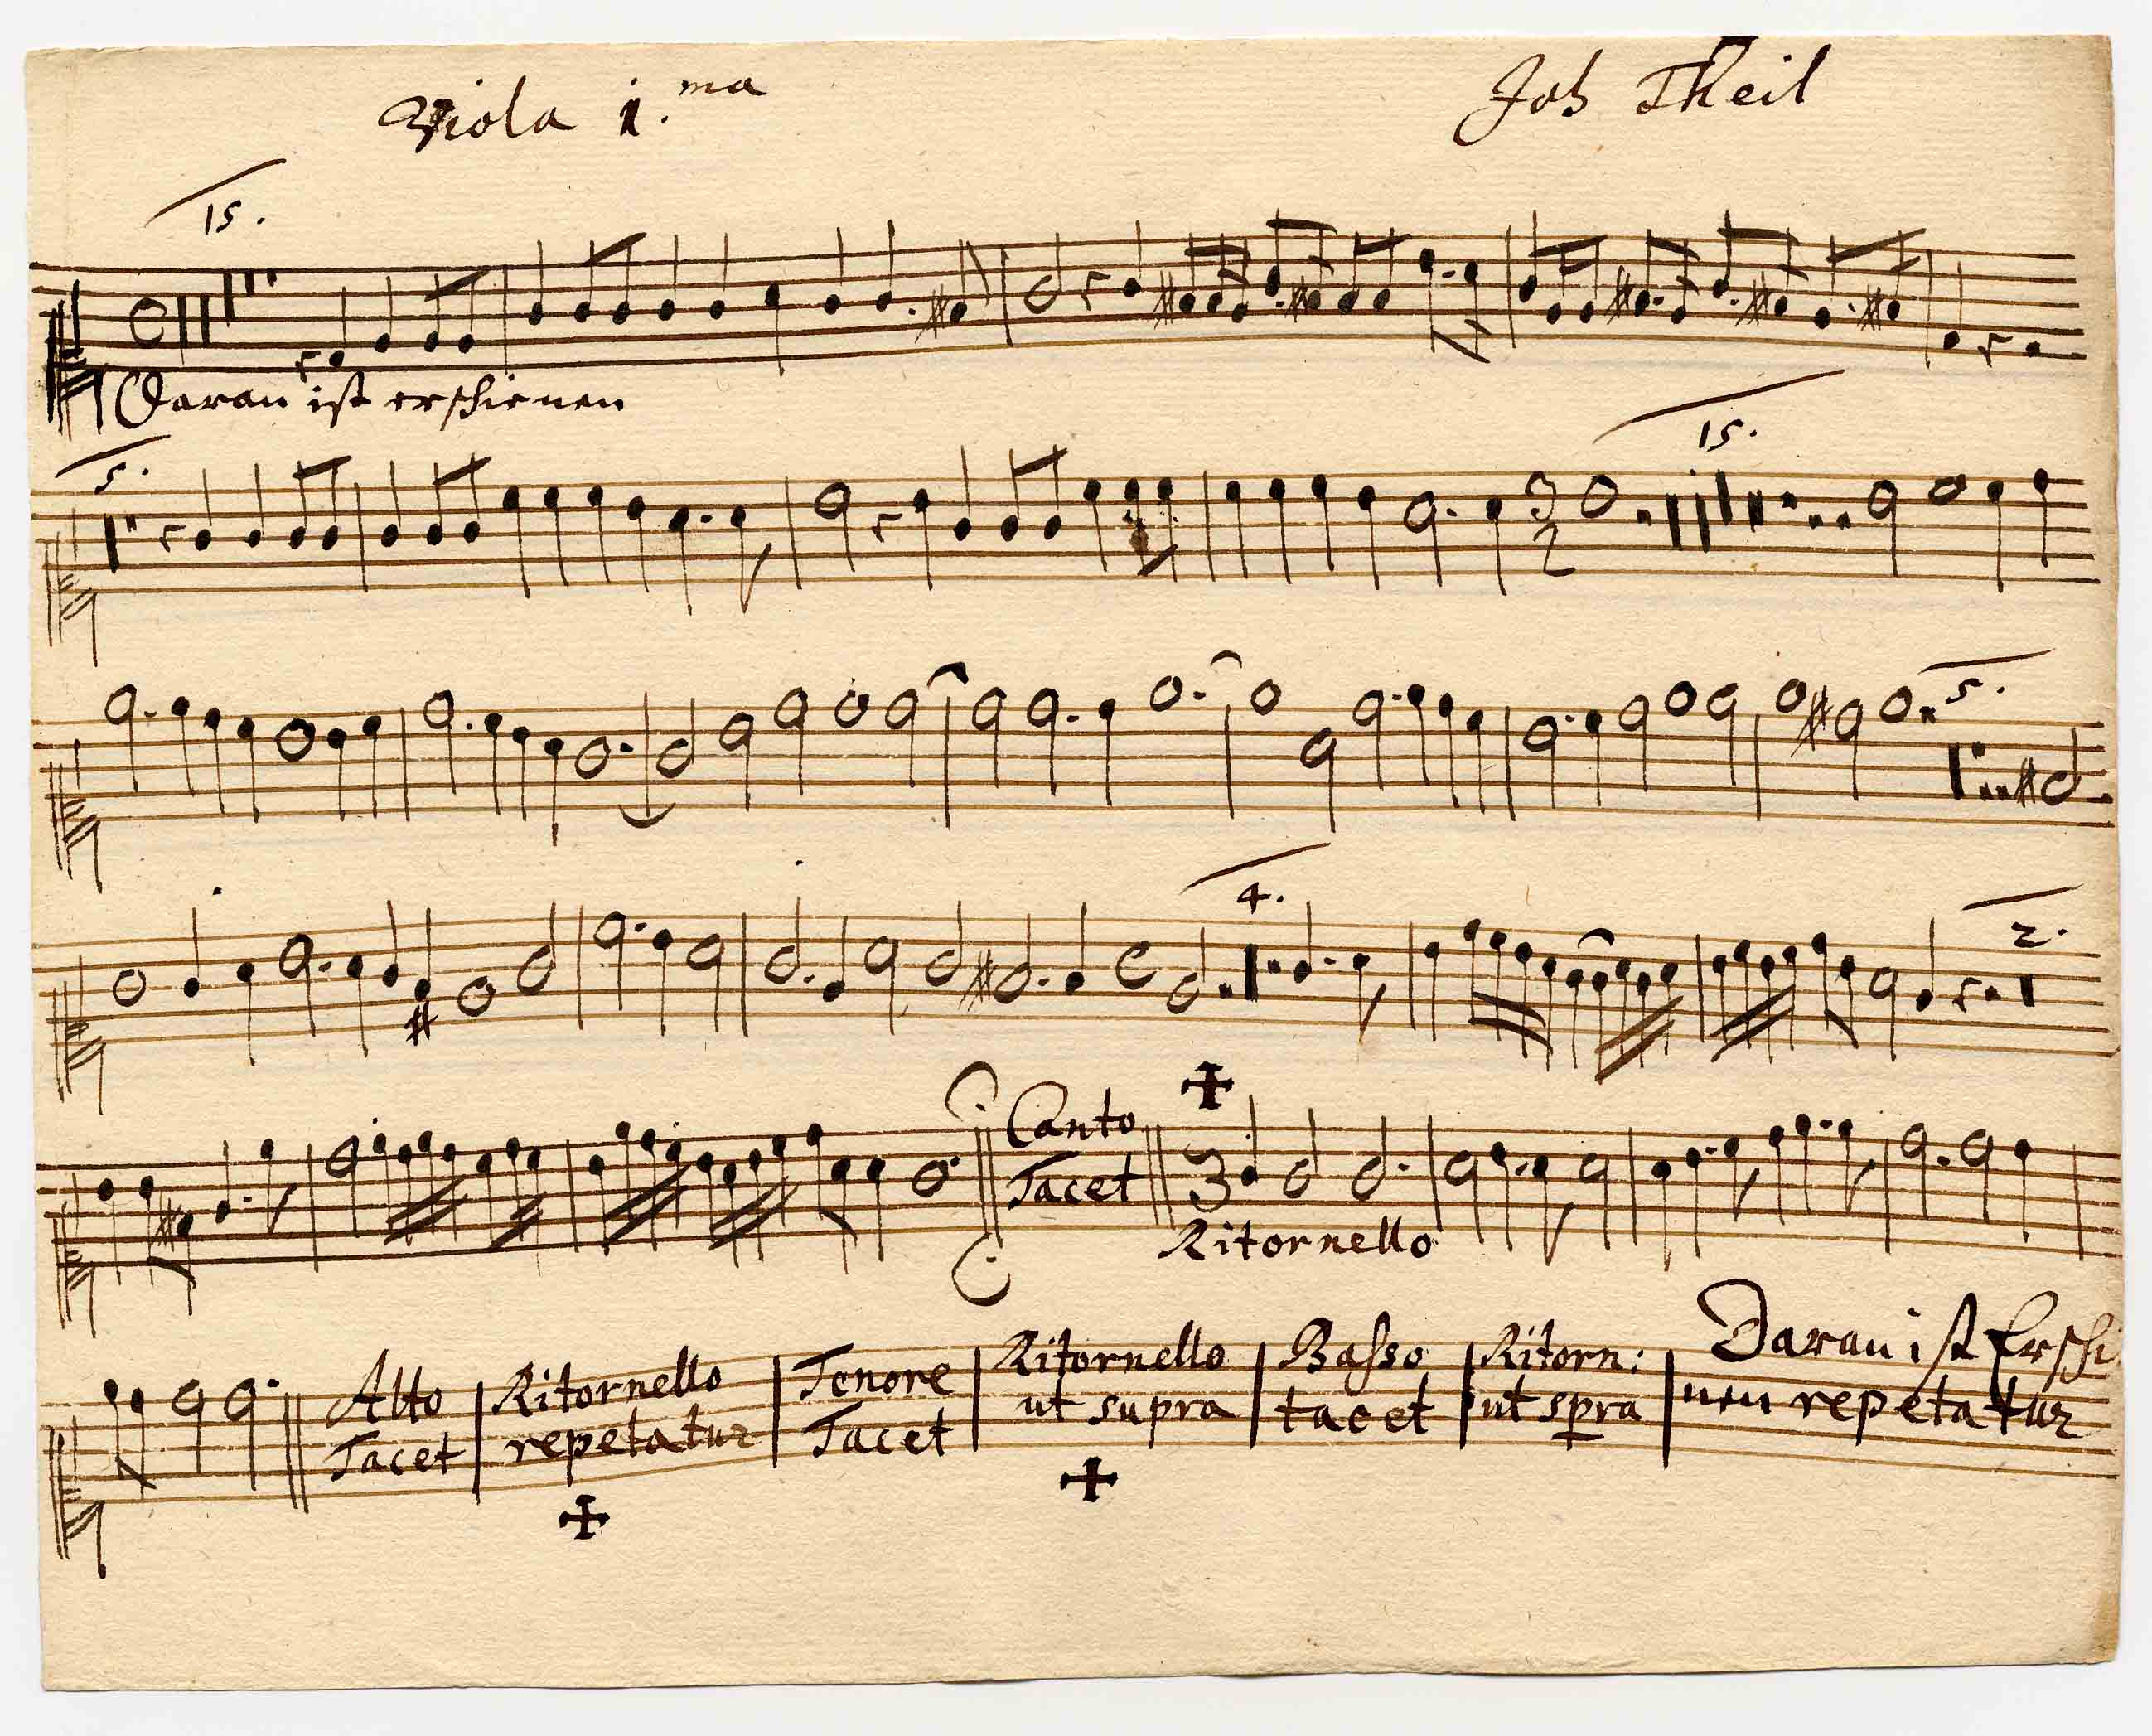 Viola 1.ma
Joh Theil
15.
Daran ist erschienen
5.
15.
3
2
5.
4.
2.
Canto
Tacet
3
Ritornello
Alto
Tacet
Ritornello
repetatur
Tenore
Tacet
Ritornello
ut supra
Basso
tacet
Ritorn:
ut spra
Daran ist Erschi
nen repetatur